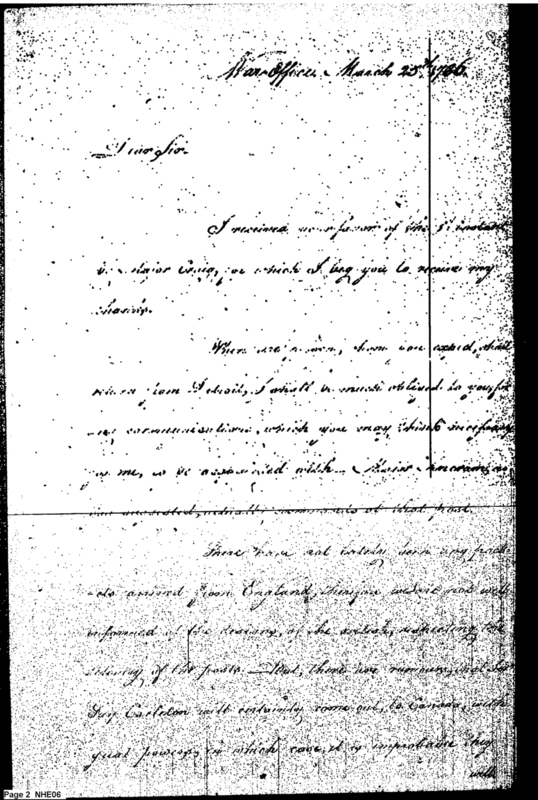 War Office March 23d 1786.
Dear Sir
I received your favor of the 1st instant
by Major Craig, for which I beg you to receive my
thanks.
When the person, whom you expect, shall
return from Detroit, I shall be much obliged to you for
any communications, which you may think necessary
for me, to be acquainted with. Major
you suggested, actually commands at that post.
There have not lately been any pack-
ets arrived from England, therefore we are not well
informed of the designs, of the British, respecting the
delivery of the posts. But, there are rumours, that Sir
Guy Carleton will certainly come out, to Canada, with
great powers, in which case, it is improbable they
will
Page 2 NHE06